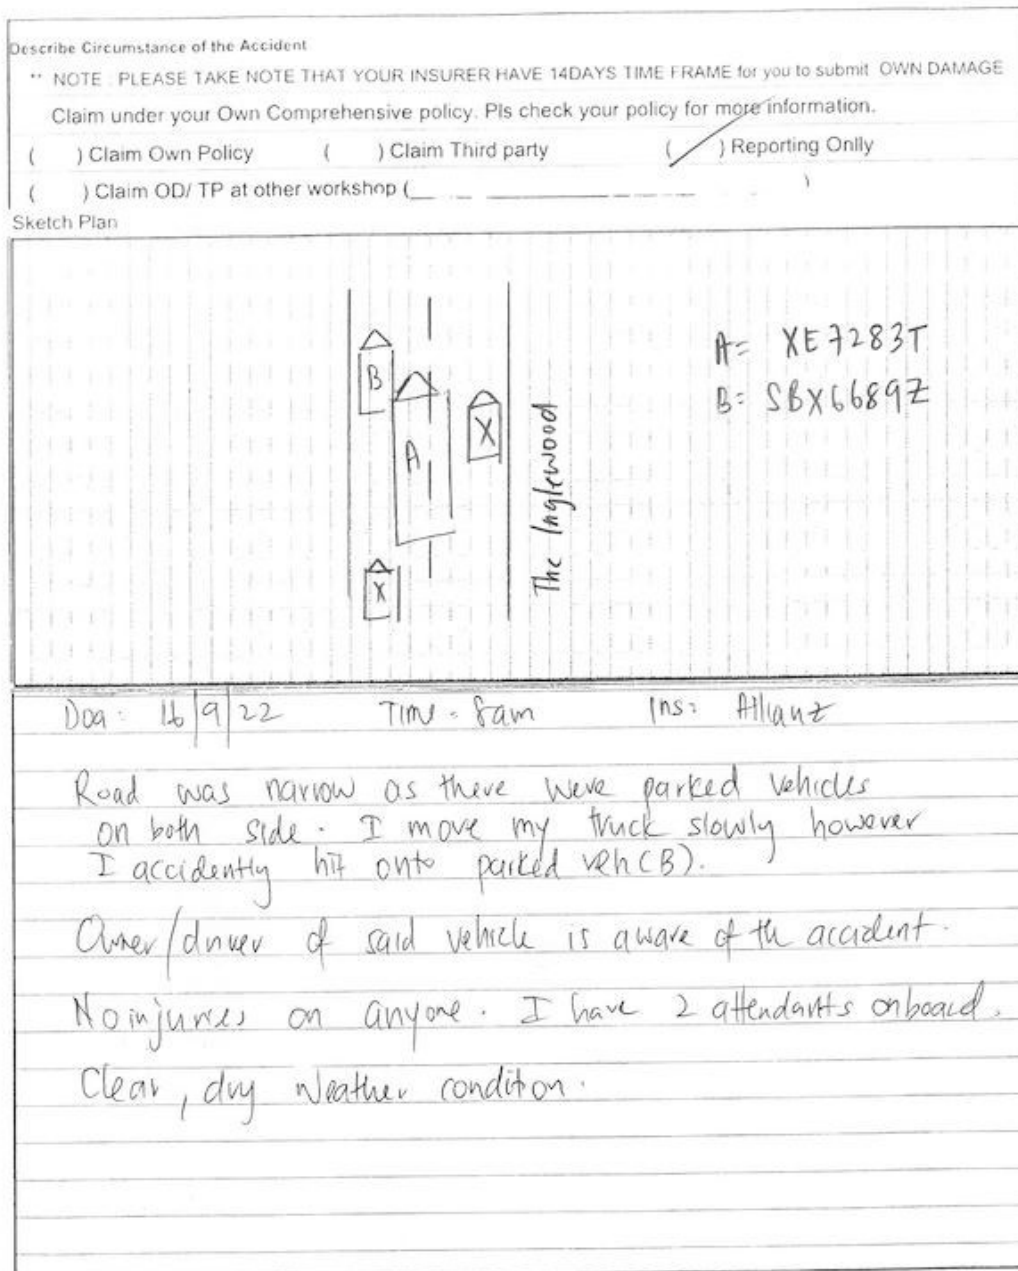 Describe Circumstance of the Accident
** NOTE : PLEASE TAKE NOTE THAT YOUR INSURER HAVE 14DAYS TIME FRAME for you to submit OWN DAMAGE
Claim under your Own Comprehensive policy. Pls check your policy for more information.
( ) Claim Own Policy ( ) Claim Third party ( ) Reporting Onlly
( ) Claim OD/ TP at other workshop ( )
Sketch Plan
B
A
X
X
The Inglewood
A= XE7283T
B= SBX6689Z
Doa: 16/9/22 Time= 8am Ins: Allianz
Road was narrow as there were parked vehicles
on both side. I move my truck slowly however
I accidently hit onto parked veh(B).
Owner/driver of said vehicle is aware of th accident.
No injuries on anyone. I have 2 attendants onboard.
Clear, dry weather condition.